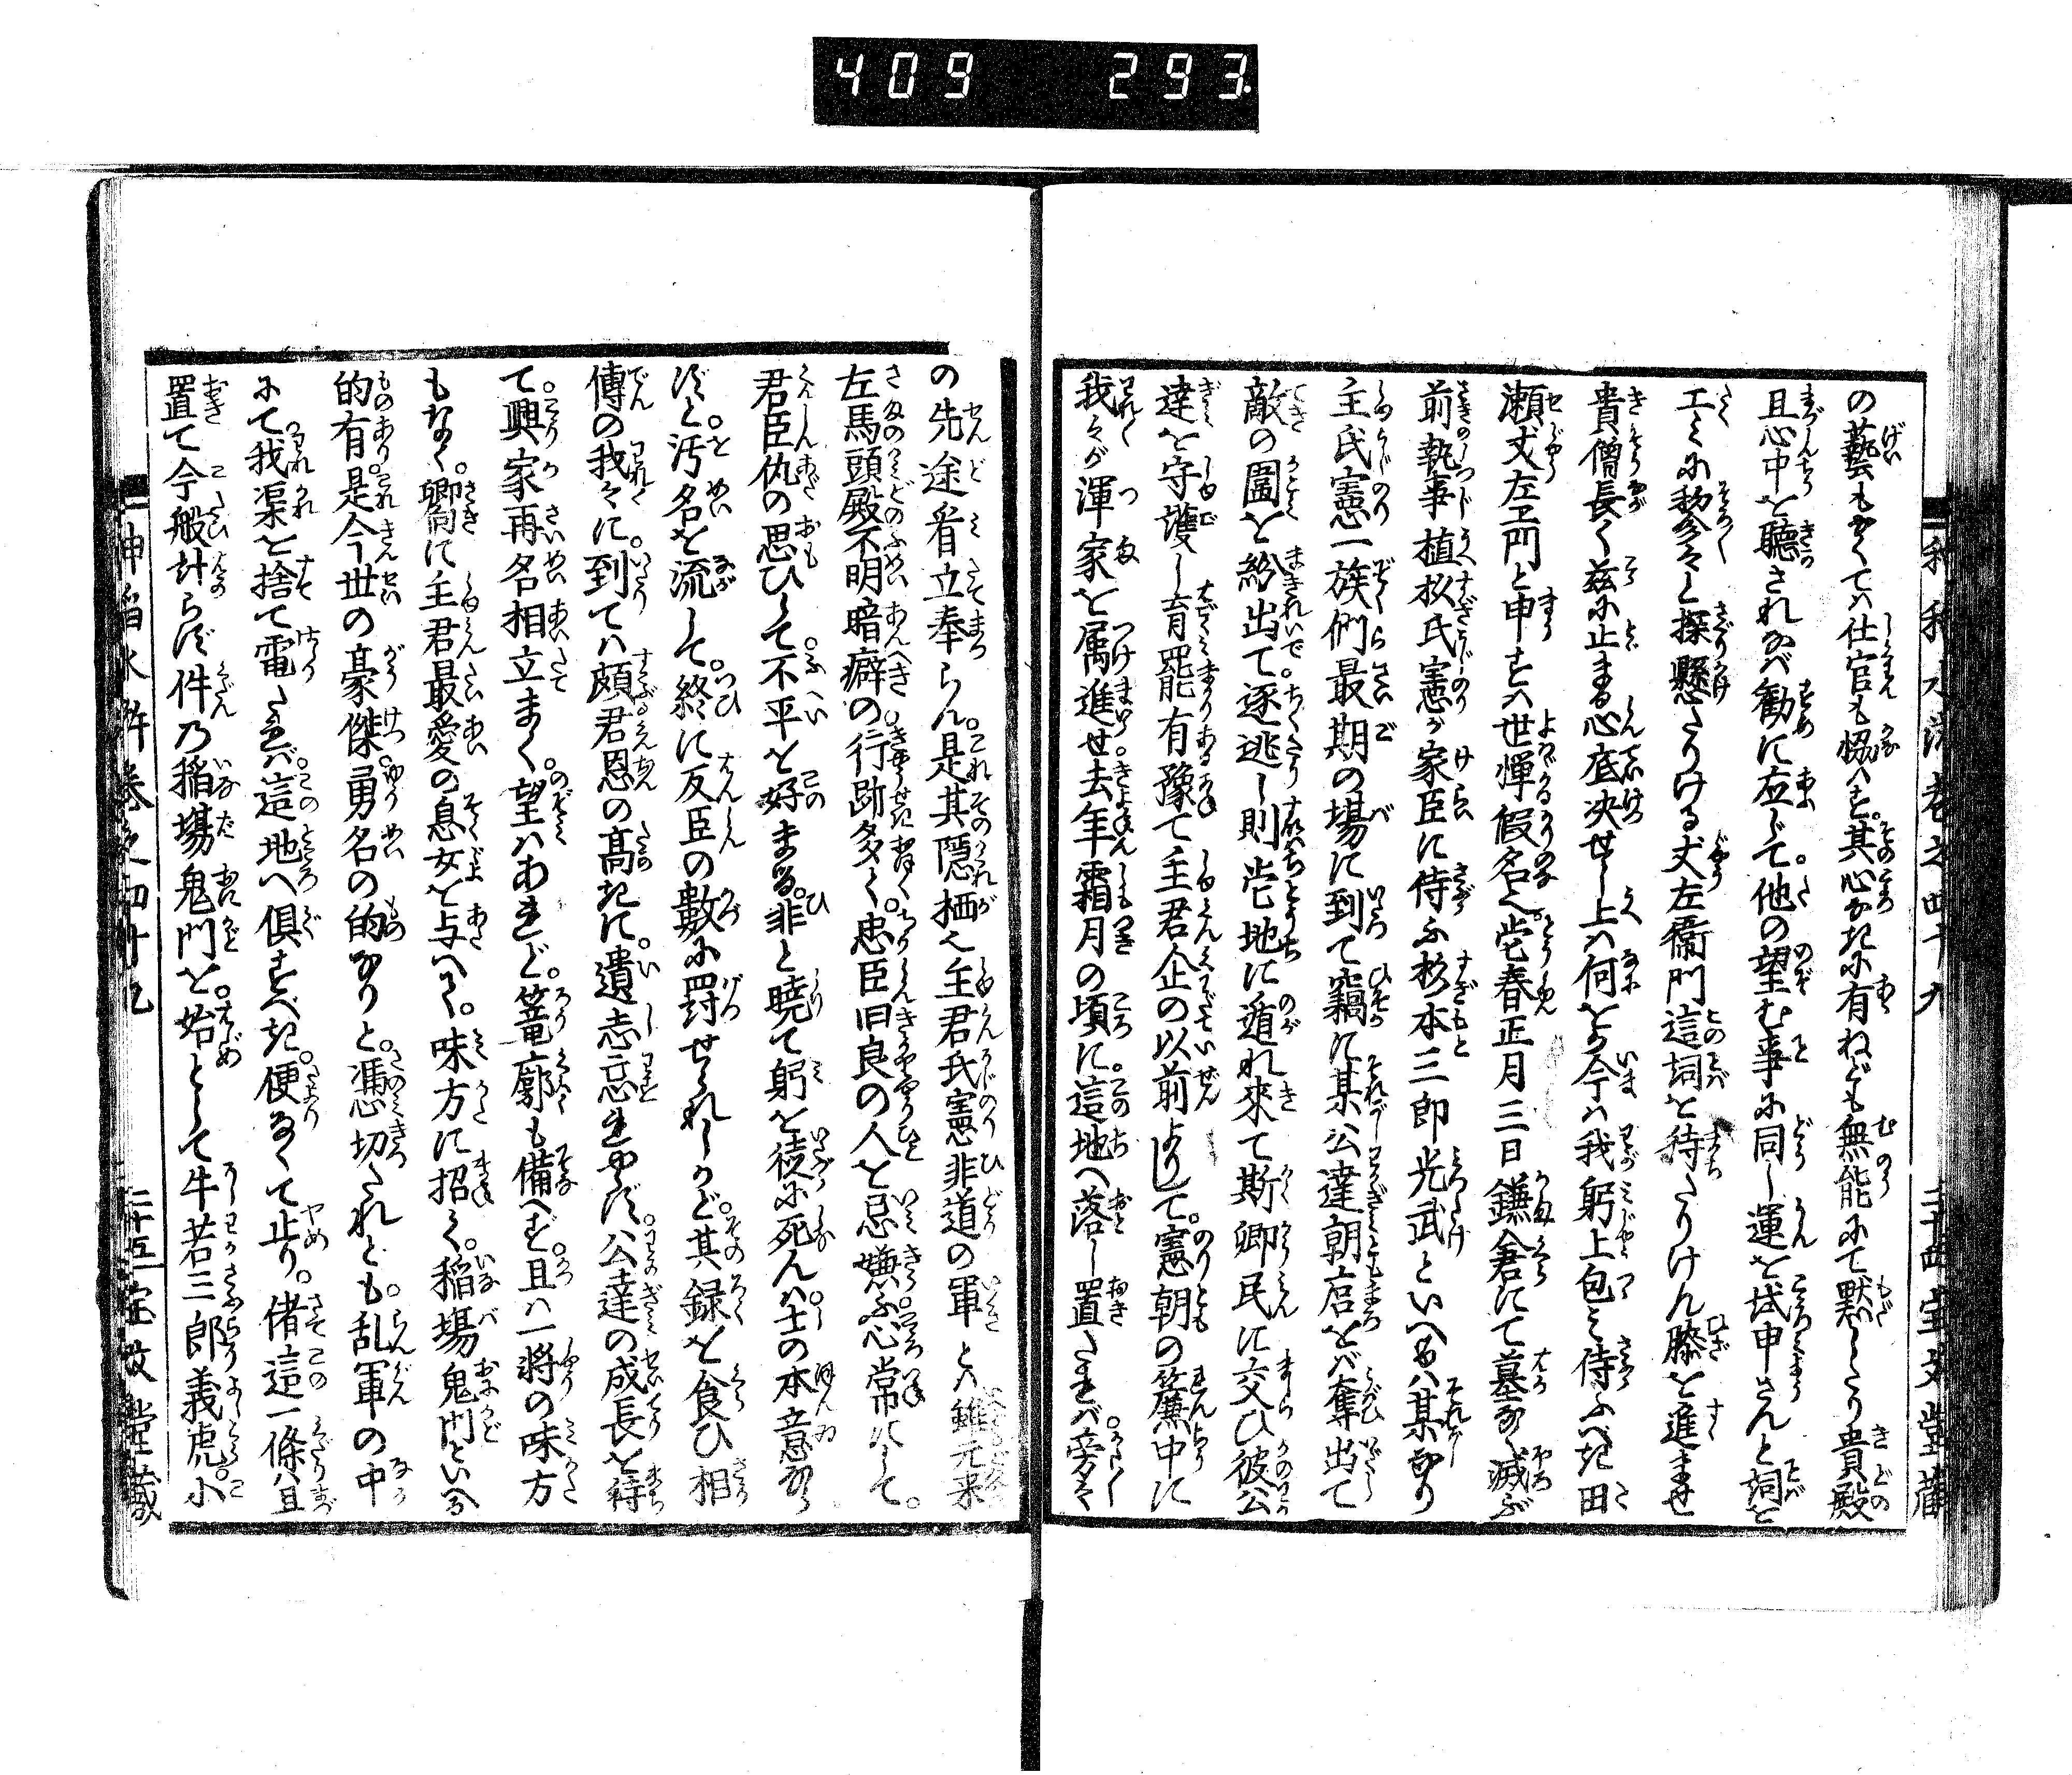 409 293
の藝もなくては仕官も協はず。其心なきに有ねども無能にて黙したり貴殿
且心中を聴されなば勧に応じて。他の望む事に同し運を試申さんと詞を
工みに動々と探懸たりける丈左衞門這詞を待たりけん膝を進ませ
貴僧長く茲に止まる心底决せし上は何をか今は我躬上包み侍ふべき田
瀬丈左ヱ門と申すは世憚假名也。当春正月三日鎌倉にて墓なく滅ぶ
前執事植杉氏憲が家臣に侍ふ杉本三郎光武といへるは某なり
主氏憲一族們最期の場に到て竊に某公達朝启をば奪出て
敵の圍を紛出て。逐逃し則当地に遁れ来て斯卿民に交ひ彼公
達を守護し育罷有豫て主君企の以前よりして。憲朝の簾中に
我々が渾家を属進せ去年霜月の頃に。這地へ落し置たれば。旁々
の先途看立奉らん。是其隠栖也主君氏憲非道の軍とは雖元来
左馬頭殿不明暗癖の。行跡多く。忠臣旧良の人を忌嫌ふ心常にして。
君臣仇の思ひして不平を好まる。非と暁て躬を徒に死んは。士の本意なら
ずと。汚名を流して。終に反臣の數に罸せられしかど。其録を食ひ相
傳の我々に。到ては頗君恩の高きに。遺志忘れやらず。公達の成長を待
て。興家再名相立まく。望はあれど。篭廓も備へず。且は一将の味方
もなく。嚮に主君最愛の息女を与へて。味方に招く。稲場鬼門といへる
的有。是今世の豪傑。勇名の的なりと。憑切たれども。乱軍の中
にて我渠を捨て電たれば。這地へ倶すべき。便なくて止り。偖這一條は且
置て今般計らず件乃稲場鬼門を。始として牛若三郎義虎。小
二十五 宝文堂蔵